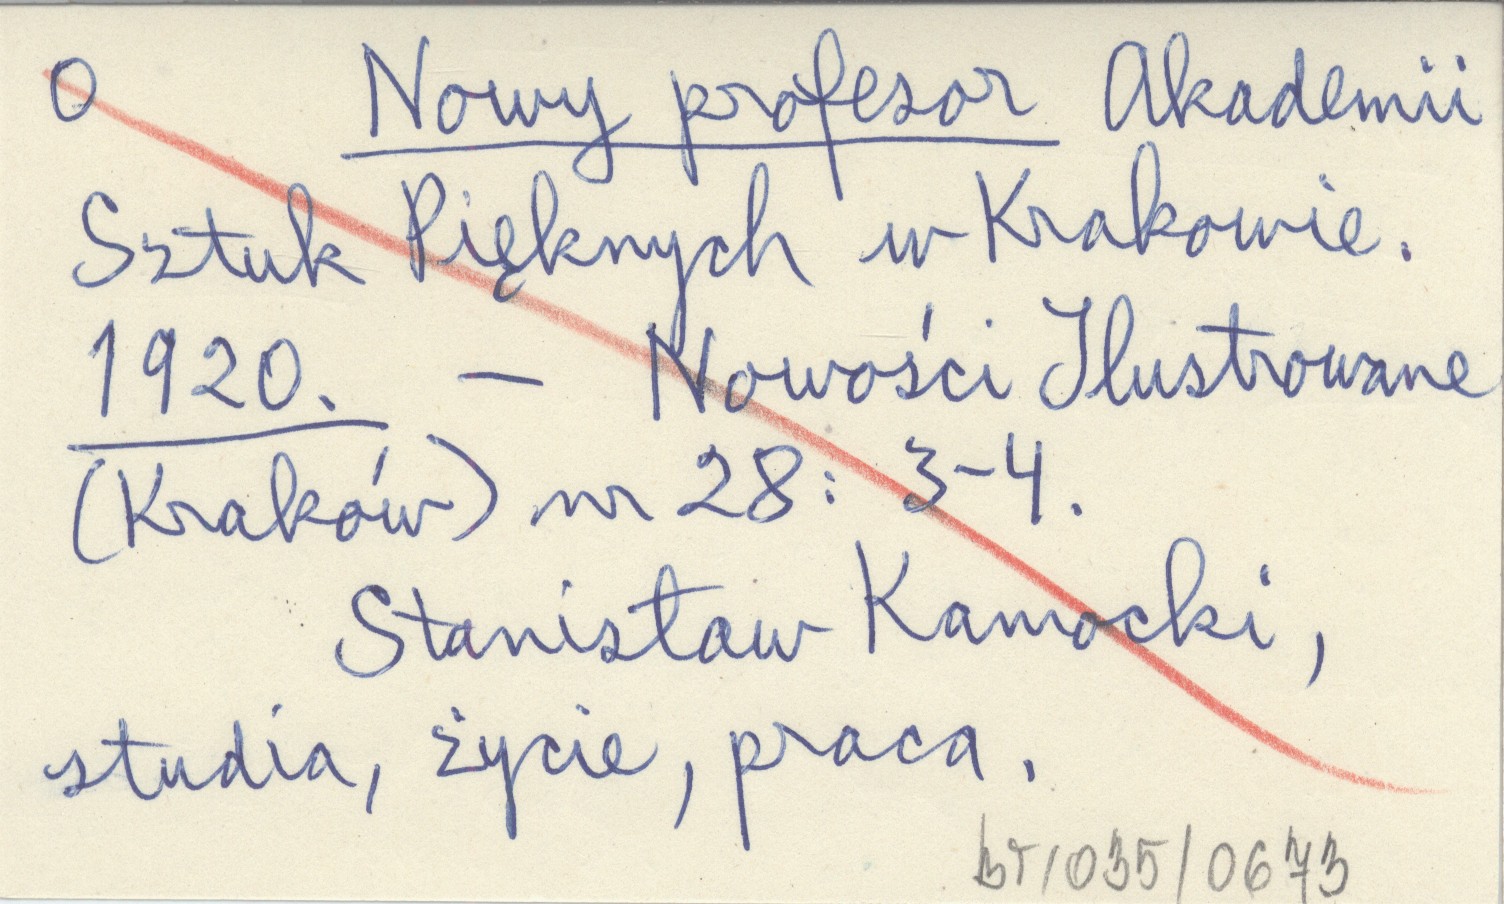 O Nowy profesor Akademii
Sztuk Pięknych w Krakowie.
1920. — Nowości Ilustrowane
(Kraków) nr 28: 3-4.
Stanisław Kamocki,
studia, życie, praca.
bт/035/0673